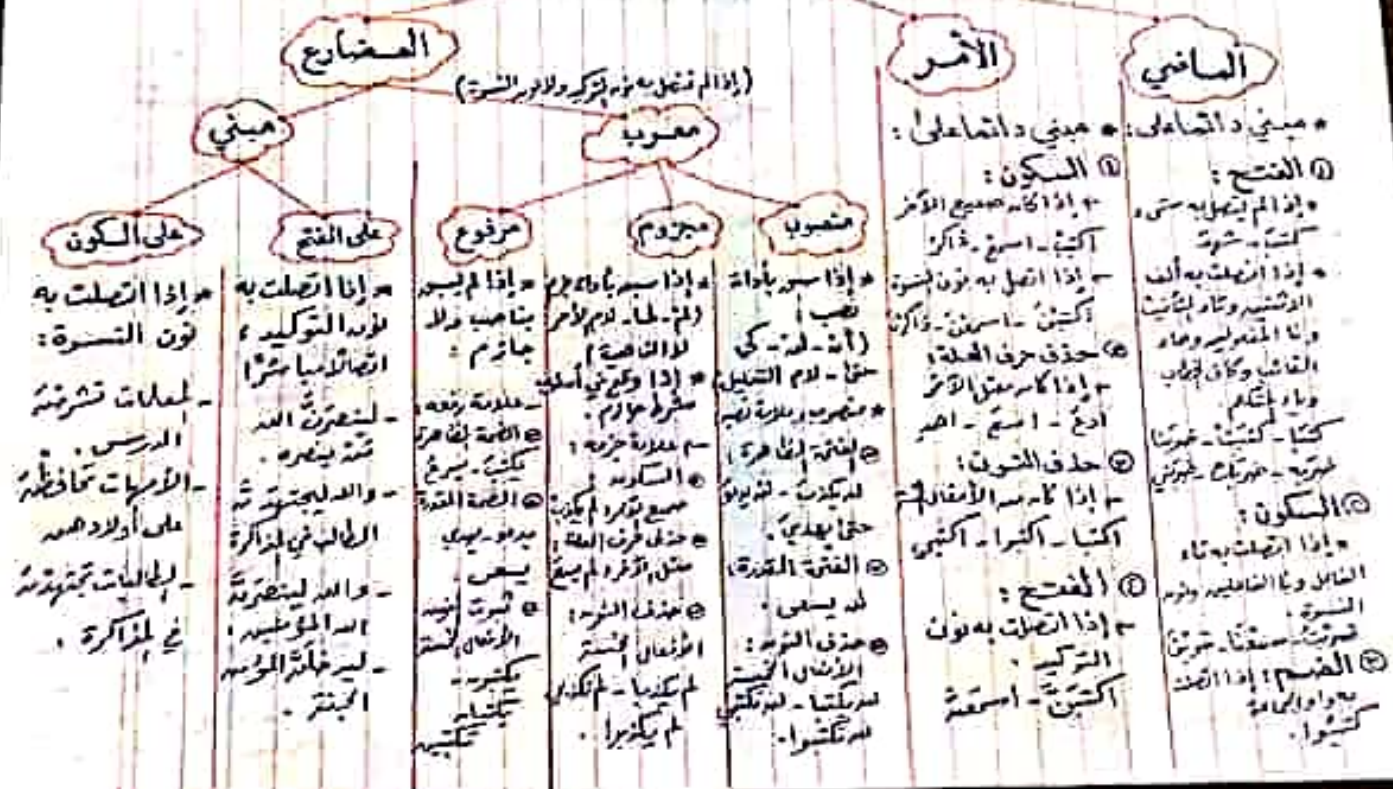 الماضي
* مبني دائما على:
① الفتح:
* إذا لم يتصل به شيء
كتبَ - شهدَ
* إذا اتصلت به ألف
الاثنين وتاء التأنيث
ونا المفعولين وهاء
الغائب وكاف الخطاب
وياء المتكلم
② السكون:
* إذا اتصلت به تاء
الفاعل ونا الفاعلين ونون
النسوة:
③ الضم: إذا اتصلت
به واو الجماعة
كتبُوا.
الأمر
* مبني دائما على:
① السكون:
- إذا كان صحيح الآخر
اكتبْ - اسمعْ - ذاكرْ
- إذا اتصل به نون النسوة
اكتبْنَ - اسمعْنَ - ذاكرْنَ
② حذف حرف العلة:
- إذا كان معتل الآخر
ادعُ - اسعَ - اهدِ
③ حذف النون:
- إذا كان من الأفعال الخمسة
اكتبا - اكتبوا - اكتبي
④ الفتح:
- إذا اتصلت به نون
التوكيد.
اكتبَنَّ - اسمعَنَّ
المضارع
(إذا لم تتصل به نون التوكيد ولا نون النسوة)
معرب
منصوب
* إذا سبق بأداة
نصب:
(أن - لن - كي
حتى - لام التعليل)
* منصوب وعلامة نصبه
الفتحة الظاهرة:
حتى يهديَ.
الفتحة المقدرة:
لن يسعى.
حذف النون:
الأفعال الخمسة
لن يكتبا - لن تكتبي
لن تكتبوا.
مجزوم
* إذا سبق بأداة جزم
(لم - لما - لام الأمر
لا الناهية)
* إذا وقع في أسلوب
شرط جازم.
- علامة جزمه:
السكون:
حذف حرف العلة:
حذف النون:
الأفعال الخمسة
مرفوع
* إذا لم يسبق
بناصب ولا
جازم:
- علامة رفعه:
الضمة الظاهرة
الضمة المقدرة
يدعو - يهدي
يسعى.
ثبوت النون
الأفعال الخمسة
يكتبون -
يكتبان
تكتبين
مبني
على الفتح
* إذا اتصلت به
نون التوكيد:
اتصالا مباشرًا
- لينصرَنَّ الله
مَنْ ينصره.
- والله ليجتهدَنَّ
الطالب في المذاكرة
- والله لينصرَنَّ
الله المؤمنين.
- ليدخلَنَّ المؤمن
الجنة.
على السكون
* إذا اتصلت به
نون النسوة:
- المعلمات تشرحْنَ
الدرس.
- الأمهات تحافظْنَ
على أولادهن
- الطالبات تجتهدْنَ
في المذاكرة.